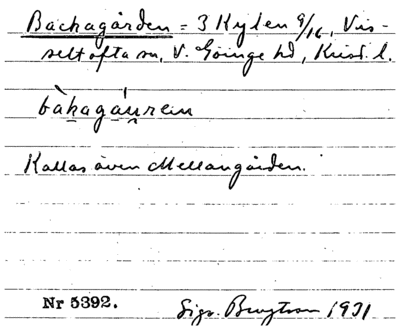 Backagården = 3 Kylen 9/16, Vis-
seltofta sn, V. Göinge hd, Krist. l.
bàkagáu̯rein
Kallas även Mellangården.
Nr 5392.
Sign. Bengtson 1931